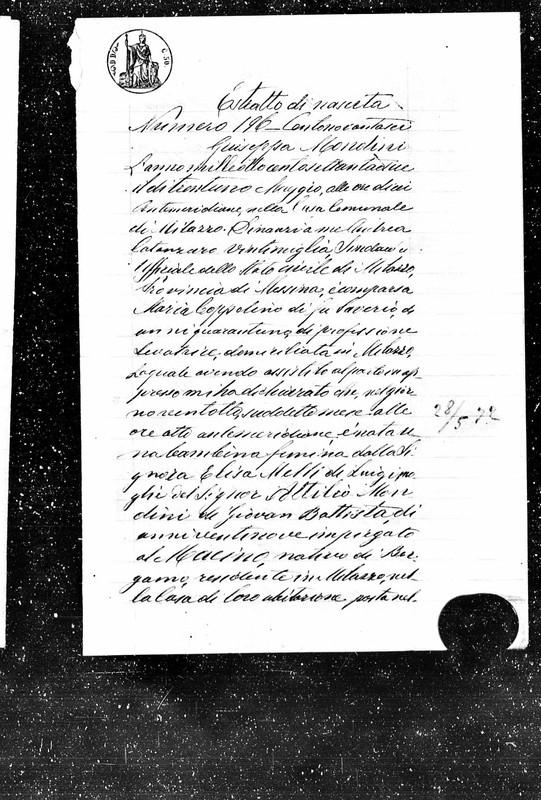 C. 50.
Estratto di nascita
Numero 196 – Centonovantasei
Giuseppa Mondini
L'anno mille ottocento settantadue
il dì trentuno Maggio, alle ore dieci
antimeridiane, nella Casa Comunale
di Milazzo. Dinanzi a me Andrea
Catanzaro Ventimiglia Sindaco e
Ufficiale dello Stato Civile di Milazzo,
Provincia di Messina, è comparsa
Maria Coppolino di fu Saverio di
anni quarantuno, di professione
Levatrice, domiciliata in Milazzo,
la quale avendo assistito al parto in ap
presso mi ha dichiarato che, nel gior
no ventotto suddetto mese alle
ore otto antemeridiane, è nata u
na bambina femina dalla Si
gnora Elisa Melli di Luigi mo
glie del Signor Attilio Mon
dini di Giovan Battista, di
anni ventinove impiegato
al Macino, nativo di Ber
gamo, residente in Milazzo, nel
la Casa di loro abitazione posta nel
28/5 72